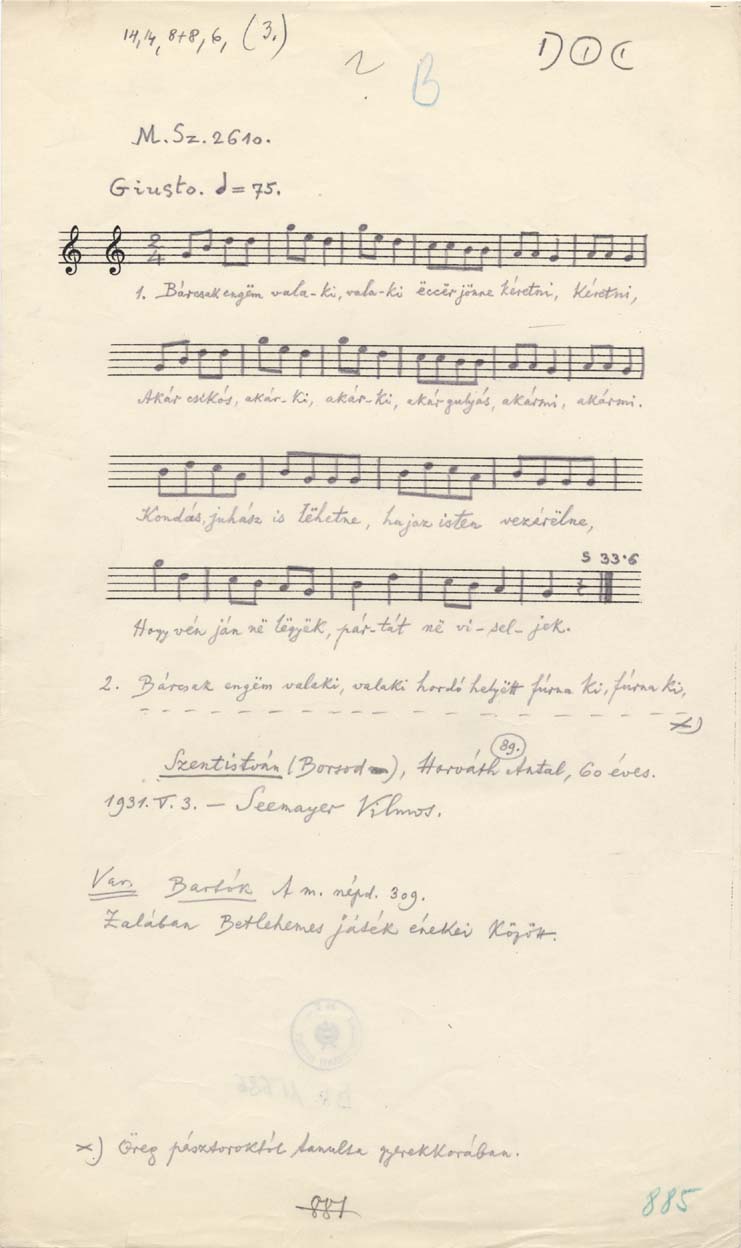 14, 14, 8+8, 6, (3.)
B
M. Sz. 2610.
Giusto. = 75.
2
4
1. Bárcsak engëm vala-ki, vala-ki ëccër jönne kéretni, kéretni,
Akár csikós, akár-ki, akár-ki, akár gulyás, akármi, akármi.
Kondás, juhász is lëhetne, ha jaz isten vezérëlne,
S 33·6
Hogy vén ján në lëgyëk, pár-tát në vi-sel-jek.
2. Bárcsak engëm valaki, valaki hordó helyëtt fúrna ki, fúrna ki,
x)
89.
Szentistván (Borsod), Horváth Antal, 60 éves.
1931. V. 3. — Seemayer Vilmos.
Var. Bartók A m. népd. 309.
Zalában Betlehemes játék énekei között.
x) Öreg pásztoroktól tanulta gyerekkorában.
881
885